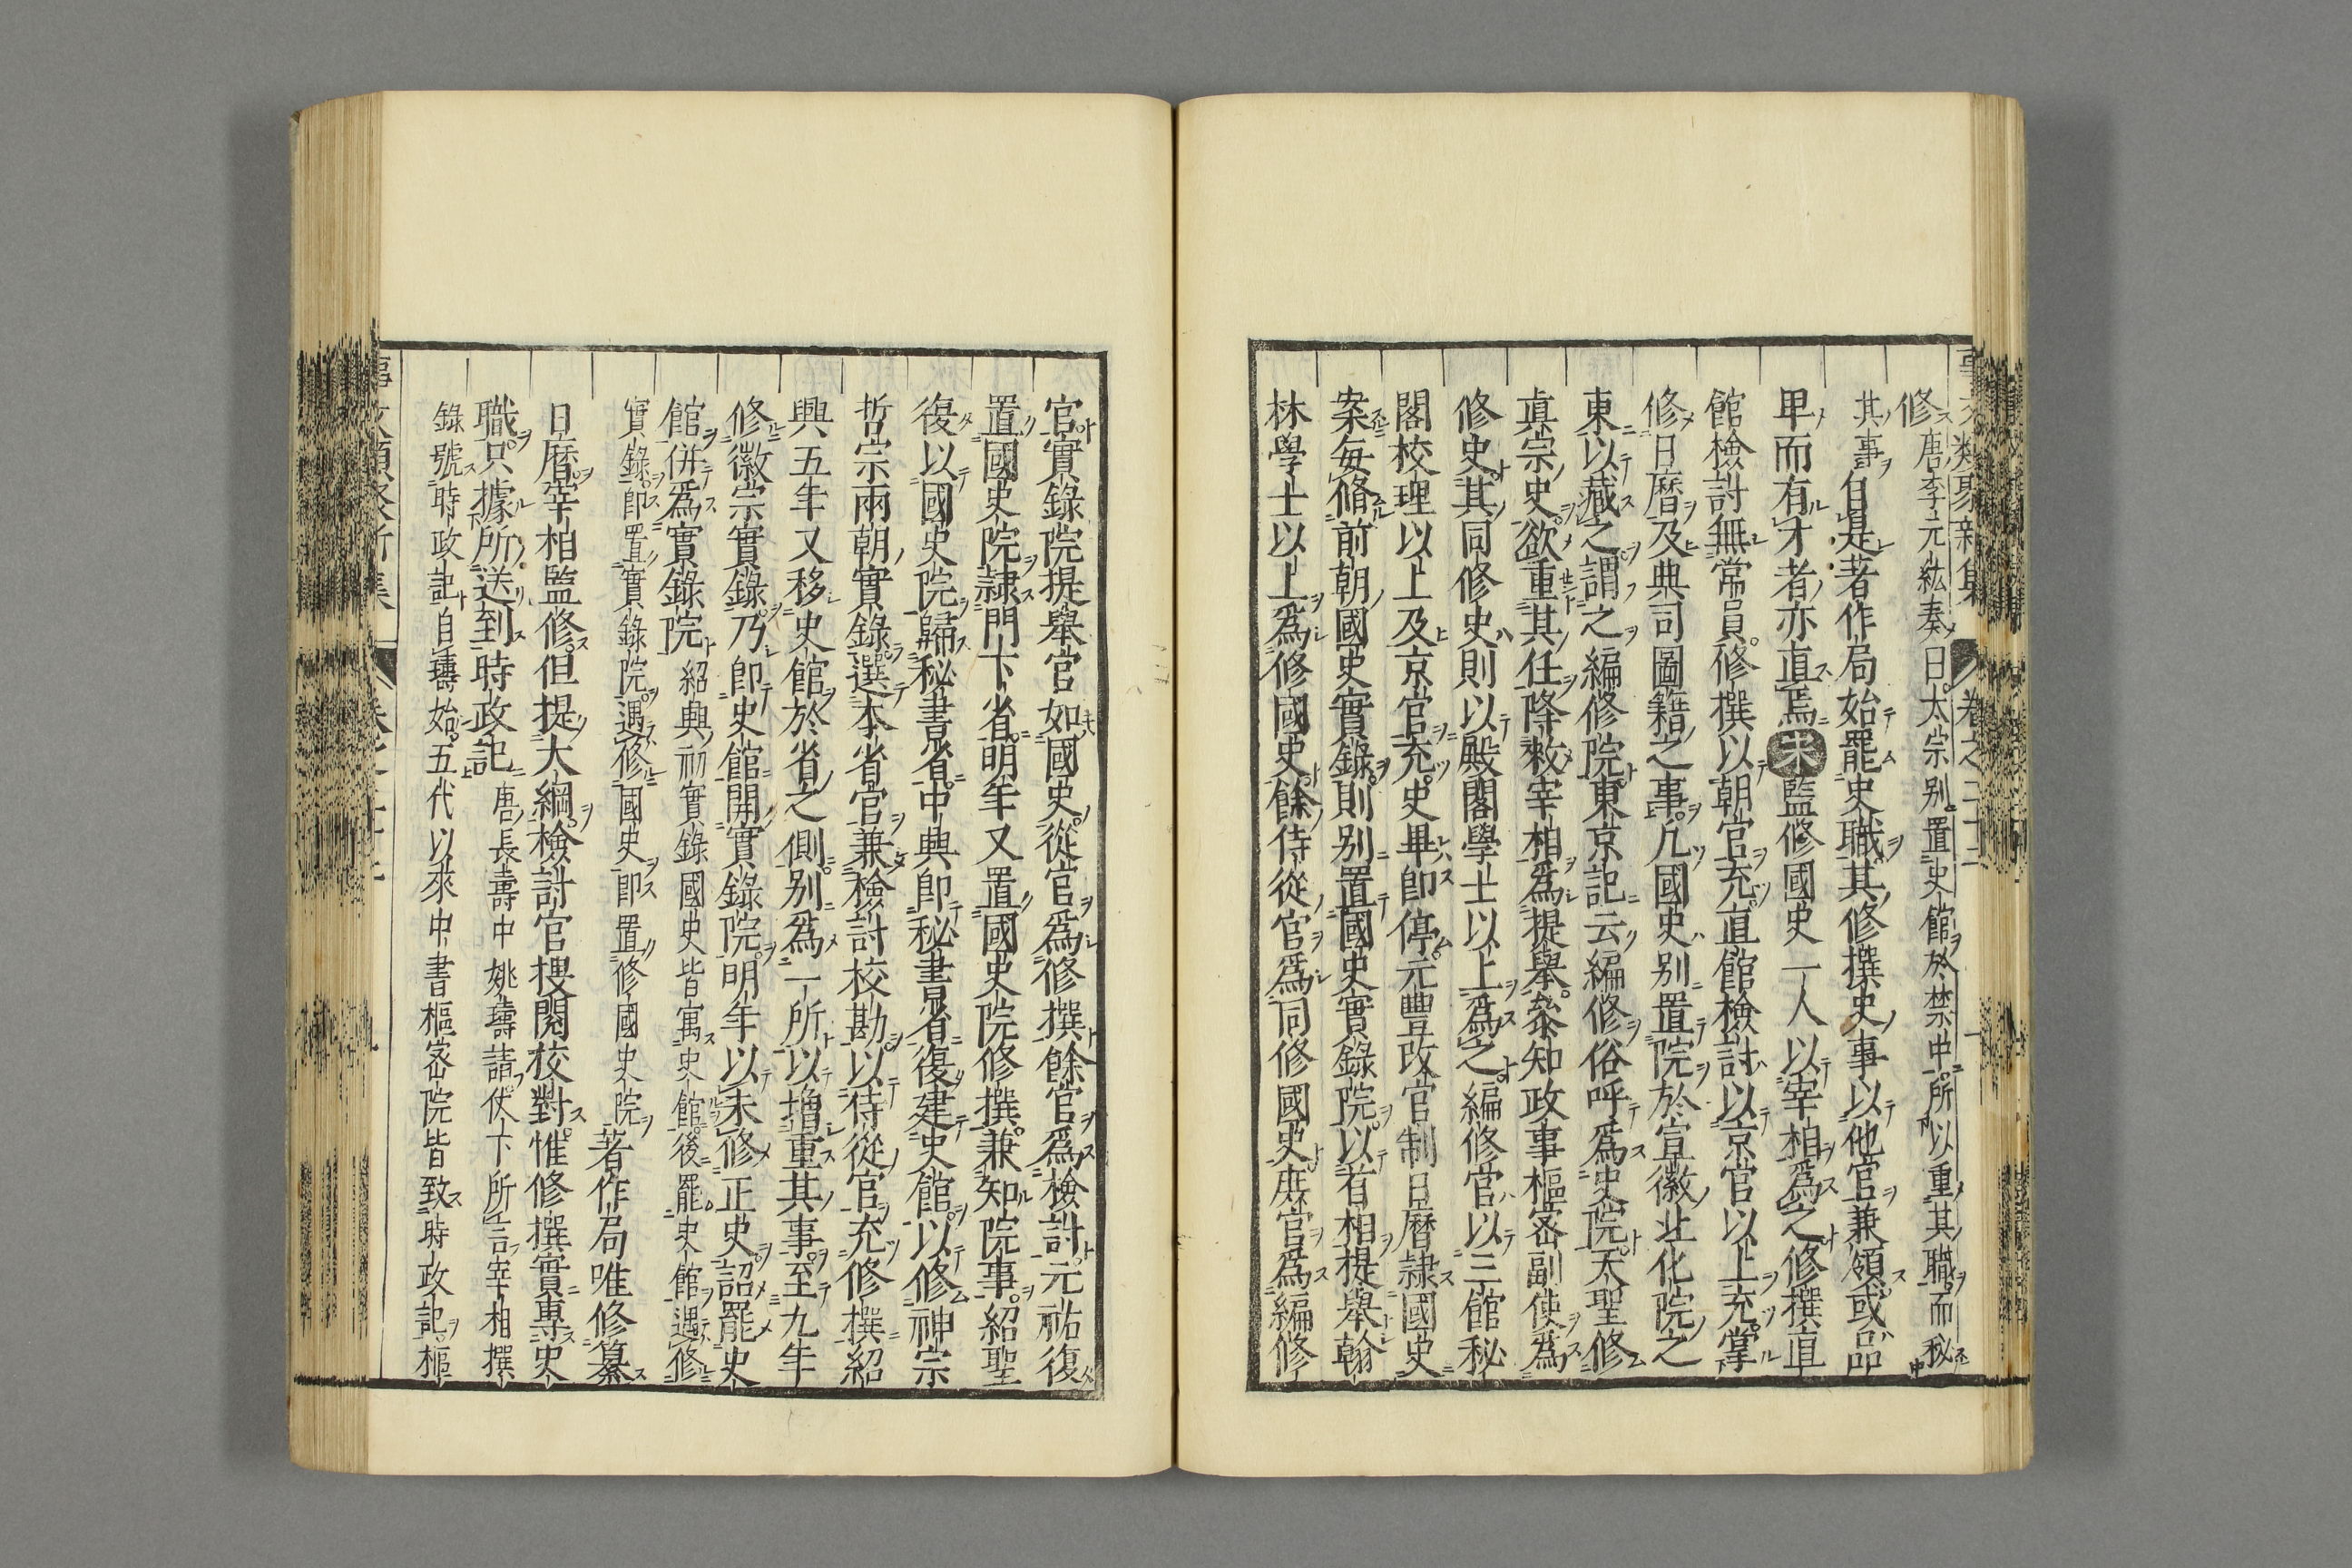 修唐李元紘奏曰太宗别置史館於禁中所以重其職而秘
其事自是著作局始罷史職其修撰史事以他官兼領或品
卑而有才者亦直焉宋監修國史一人以宰相爲之修撰直
館檢討無常員修撰以朝官充直館檢討以京官以上充掌
修日曆及典司圖籍之事凡國史别置院於宣徽北化院之
東以藏之謂之編修院東京記云編修俗呼爲史院天聖修
真宗史欲重其任降敕宰相爲提舉叅知政事樞宻副使爲
修史其同修史則以殿閣學士以上爲之編修官以三館秘
閣校理以上及京官充史畢卽停元豐改官制日曆隷國史
案每脩前朝國史實錄則别置國史實錄院以首相提舉翰
林學士以上爲修國史餘侍從官爲同修國史庶官爲編修
官實錄院提舉官如國史從官爲修撰餘官爲檢討元祐復
置國史院隷門下省明年又置國史院修撰兼知院事紹聖
復以國史院歸秘書省中興卽秘書省復建史館以修神宗
哲宗兩朝實錄選本省官兼檢討校勘以侍從官充修撰紹
興五年又移史館於省之側别爲一所以增重其事至九年
修徽宗實錄乃卽史館開實錄院明年以未修正史詔罷史
館併爲實錄院紹興初實錄國史皆寓史館後罷史館遇修
實錄卽置實錄院遇修國史卽置修國史院著作局唯修纂
日曆宰相監修但提大綱檢討官搜閱校對惟修撰實專史
職只據所送到時政記唐長壽中姚璹請仗下所言宰相撰
錄號時政記自璹始五代以來中書樞宻院皆致時政記樞